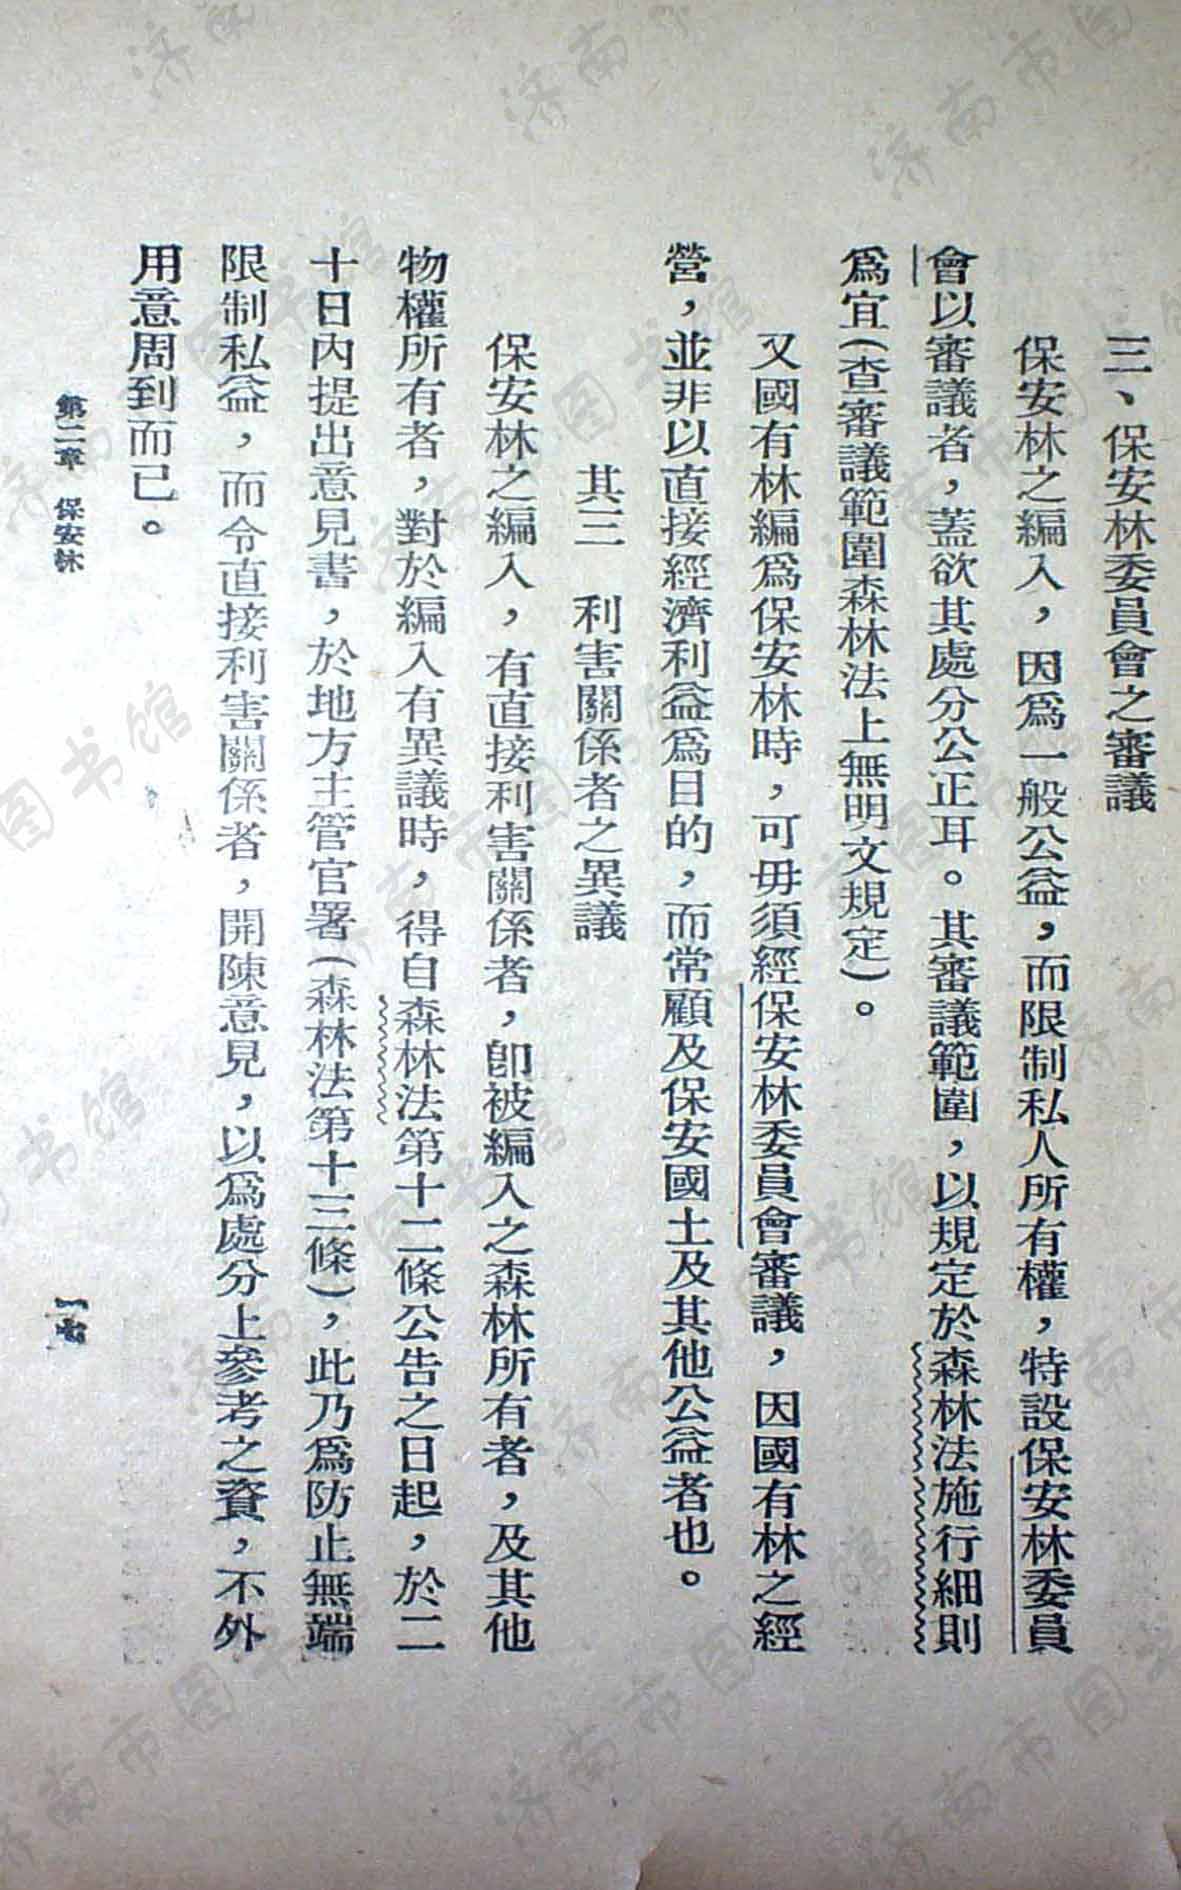 三、保安林委員會之審議
保安林之編入，因爲一般公益，而限制私人所有權，特設保安林委員
會以審議者，蓋欲其處分公正耳。其審議範圍，以規定於森林法施行細則
爲宜（查審議範圍森林法上無明文規定）。
又國有林編爲保安林時，可毋須經保安林委員會審議，因國有林之經
營，並非以直接經濟利益爲目的，而常顧及保安國土及其他公益者也。
其三　利害關係者之異議
保安林之編入，有直接利害關係者，卽被編入之森林所有者，及其他
物權所有者，對於編入有異議時，得自森林法第十二條公告之日起，於二
十日內提出意見書，於地方主管官署（森林法第十三條），此乃爲防止無端
限制私益，而令直接利害關係者，開陳意見，以爲處分上參考之資，不外
用意周到而已。
第二章　保安林
一七
济南市图书馆